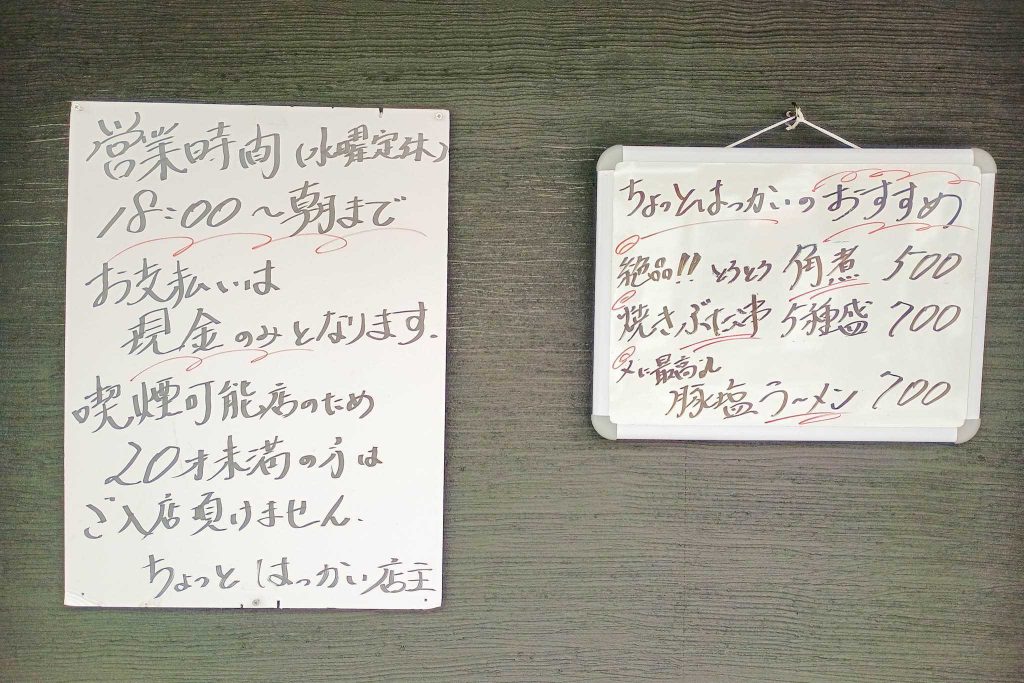 営業時間(水曜定休)
18:00〜朝まで
お支払いは
現金のみとなります.
喫煙可能店のため
20才未満の方は
ご入店頂けません.
ちょっとはっかい店主
ちょっとはっかいのおすすめ
絶品!! とろとろ 角煮 500
焼きぶた串 5種盛 700
〆に最高♪
豚塩ラーメン 700